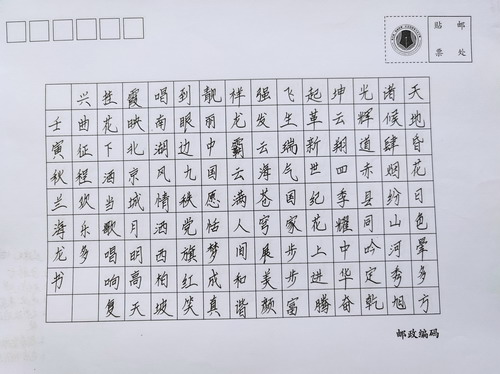 贴邮
票处
天地昏花日色晕多方
诸候肆烟纷山河秀旭
光辉道赤县同吟定乾
坤云翔四季耀中华奋
起革新世纪花上进腾
飞生瑞气国家步步富
强发云海苍穹展美颜
祥龙霸云满人间和谐
靓丽中国愿恬梦成真
到眼边九秩党旗红笑
唱南湖风情洒西柏坡
霞映北京城月明高天
挂花下酒当歌唱响复
兴曲征程欣乐多
壬寅秋兰海龙书
邮政编码